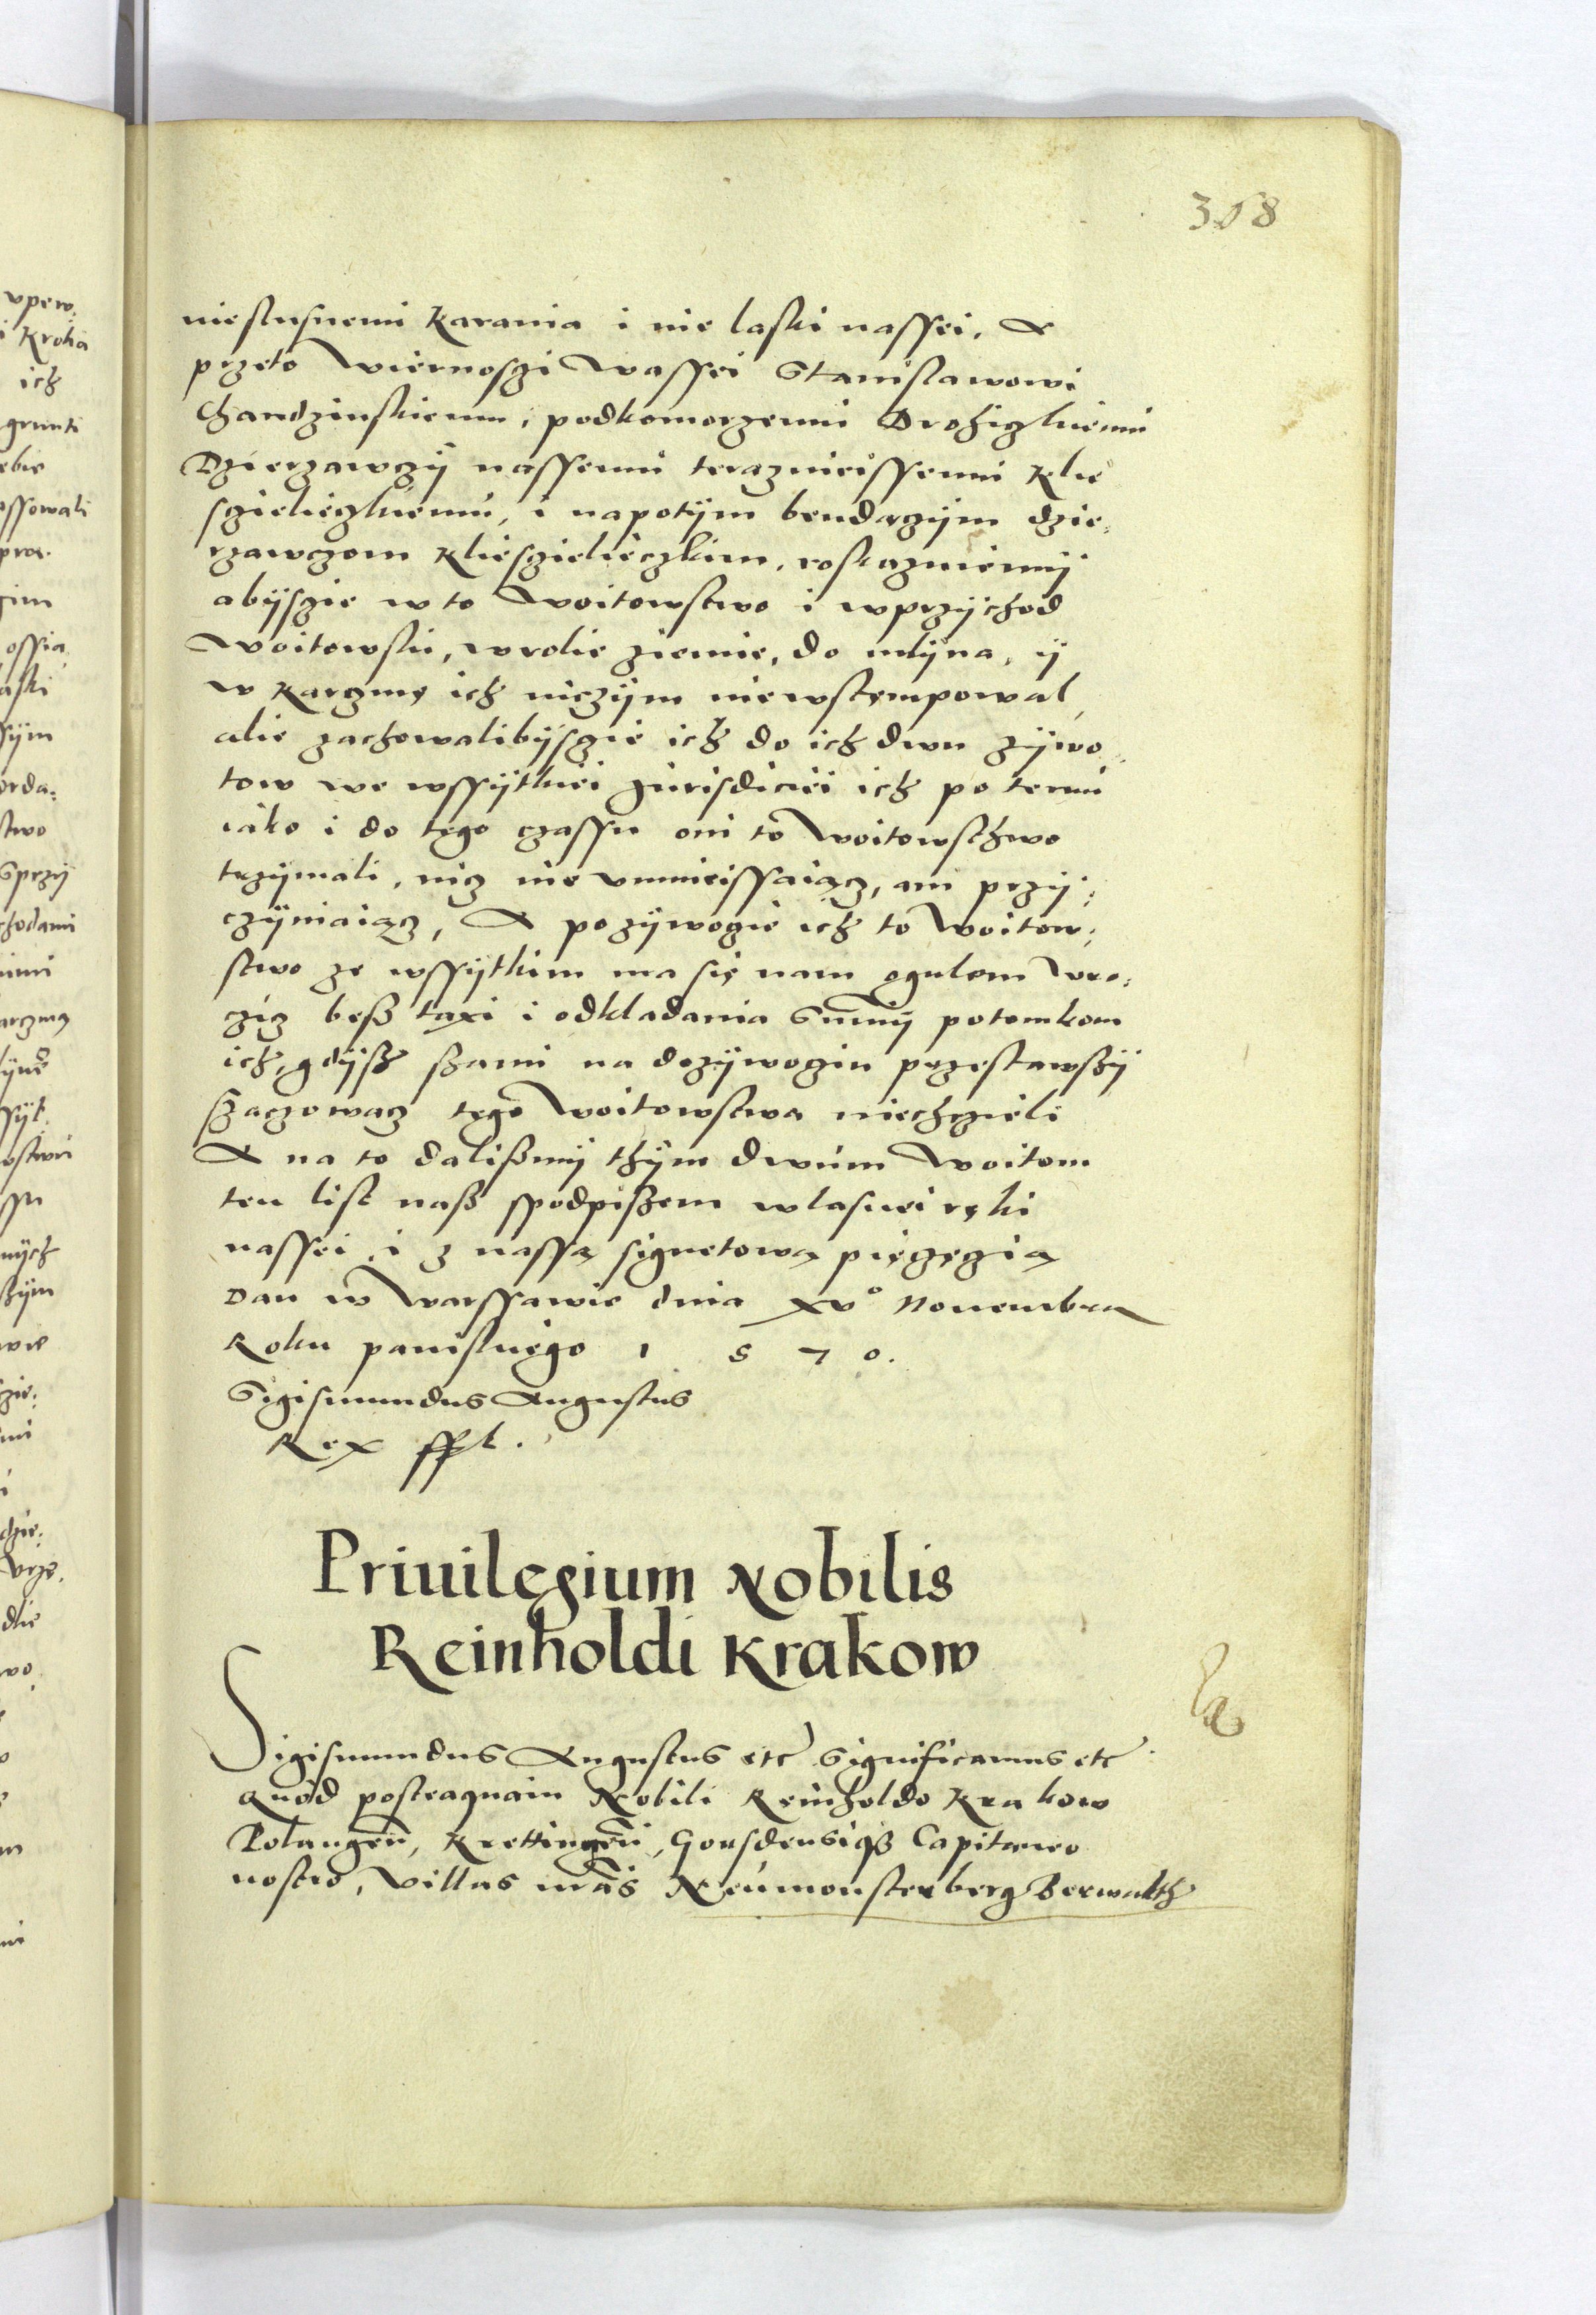 308
niesłusnemi Karania i nie laski nassei. A
przeto Wiernosczi Wassei Stanisławowi
Chandzinskiemu, podkomorzemu Drohizkiemu
Dzierzawczÿ nassemu teraznieissemu Klie
sczieliczkiemu, i napotÿm bendączÿm dzie,
rzawczom Kliesczielieczkim, roskazuiemÿ
abÿsczie w to Woitowstwo i wprzÿchod
Woitowski, wrolie ziemie, do młÿna, ÿ
w Karczmę ich niczÿm niewstempowal,
alie zachowalibÿsczie ich do ich dwu zÿwo,
tow we wssÿtkiei Jurisdiciei ich po temu
iako i do tego czassu oni to Woitowsthwo
trzÿmali, nicz nie vmnieissaiącz, ani przÿ,
czÿniaiącz, A po zÿwocie ich to Woitow,
stwo ze wssÿtkim ma się nam ogulem wro,
cicz besz taxi i odkladania Summÿ potomkom
ich, gdÿsz szami na dozÿwociu przestawszÿ
szaczowacz tego Woitowstwa niechcieli
A na to dalismÿ thÿm dwum Woitom
ten list nasz spodpiszem własnei ręki
nassei i z nassą signetową pieczęcią
Dan w Warssawie dnia xv° Nouembra
Roku panskiego 1 5 7 0.
Sigismundus Augustus
Rex sspt.
Priuilegium Nobilis
Reinholdi Krakow
Sigismundus Augustus etc Significamus etc
Quod posteaquam Nobili Reinholdo Krakow
Polangeñ, Krettingeñ, Gorsdensiqз Capitaneo
nostro, Villas nrãs Neumonsterberg Berwalth